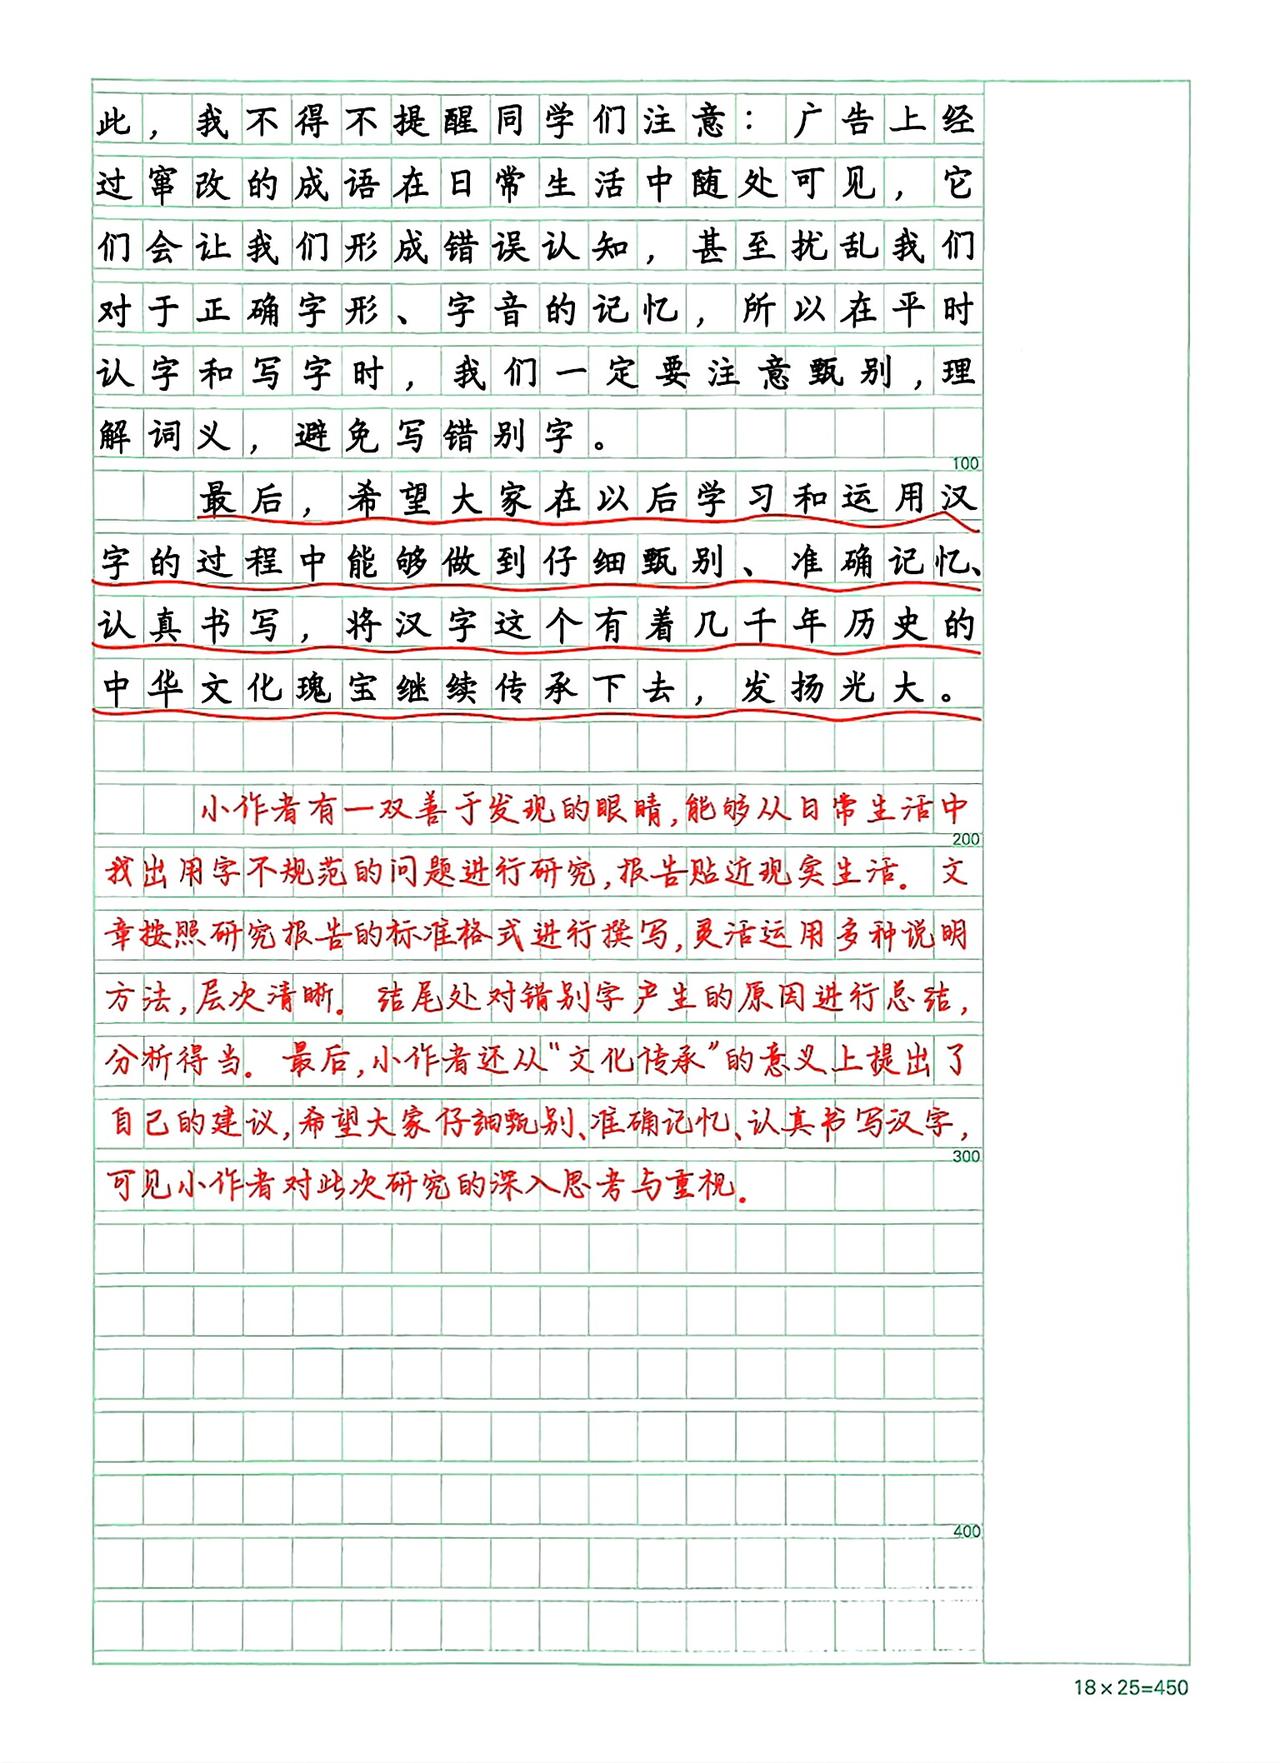 此，我不得不提醒同学们注意：广告上经
过窜改的成语在日常生活中随处可见，它
们会让我们形成错误认知，甚至扰乱我们
对于正确字形、字音的记忆，所以在平时
认字和写字时，我们一定要注意甄别，理
解词义，避免写错别字。
100
最后，希望大家在以后学习和运用汉
字的过程中能够做到仔细甄别、准确记忆、
认真书写，将汉字这个有着几千年历史的
中华文化瑰宝继续传承下去，发扬光大。
小作者有一双善于发现的眼睛,能够从日常生活中
200
找出用字不规范的问题进行研究,报告贴近现实生活。文
章按照研究报告的标准格式进行撰写,灵活运用多种说明
方法,层次清晰。结尾处对错别字产生的原因进行总结,
分析得当。最后,小作者还从“文化传承”的意义上提出了
自己的建议,希望大家仔细甄别、准确记忆、认真书写汉字,
300
可见小作者对此次研究的深入思考与重视。
400
18×25=450